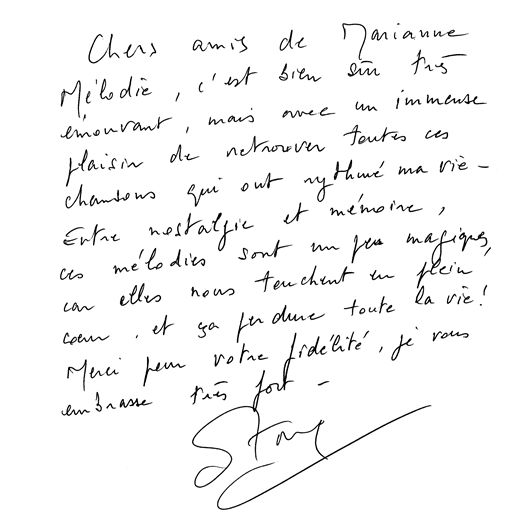 Chers amis de Marianne
Mélodie, c'est bien sûr très
émouvant, mais avec un immense
plaisir de retrouver toutes ces
chansons qui ont rythmé ma vie -
Entre nostalgie et mémoire,
ces mélodies sont un peu magiques,
car elles nous touchent en plein
cœur, et ça perdure toute la vie !
Merci pour votre fidélité, je vous
embrasse très fort -
Stone